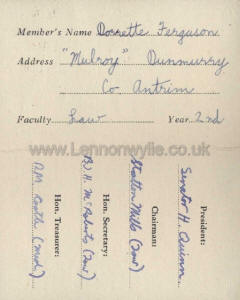 Member's Name Dorrette Ferguson
Address "Mulroy" Dunmurry
Co. Antrim
Faculty Law Year 2nd
www.Lennonwylie.co.uk
President:
Senator H. Quinn
Chairman:
Stratton Mills (Law)
Hon. Secretary:
B. H. McRoberts (Law)
Hon. Treasurer:
(Med.)